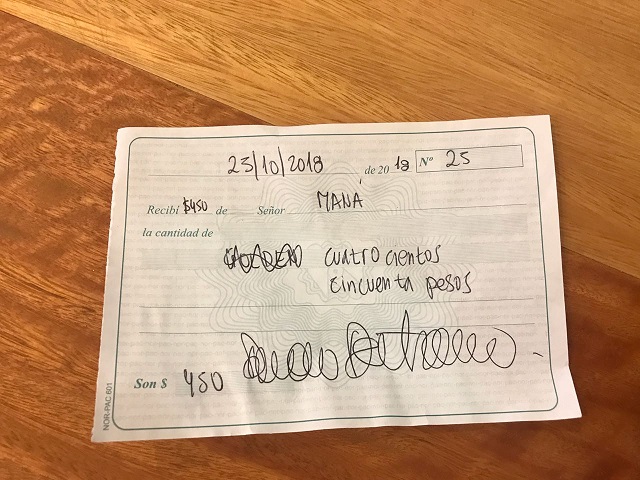 23/10/2018 de 20 18 Nº 25
Recibí $450 de Señor MANÁ
la cantidad de
cuatrocientos
cincuenta pesos
Son $ 450
NOR-PAC 601